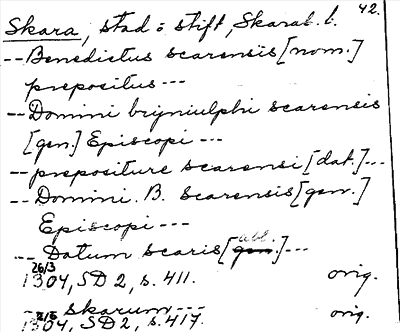 42.
Skara, stad o stift, Skarab. l.
-- Benedictus scarensis [nom.]
prepositus ---
-- Domini brijniulphi scarensis
[gen.] Episcopi ---
-- prepositure scarensi [dat.] ---
-- Domini. B. Scarensis [gen.]
Episcopi ---
-- Datum scaris [gen. abl.] ---
26/3 1304, SD 2, s. 411. orig.
-- skarum ---
1304, SD 2, s. 417. orig.